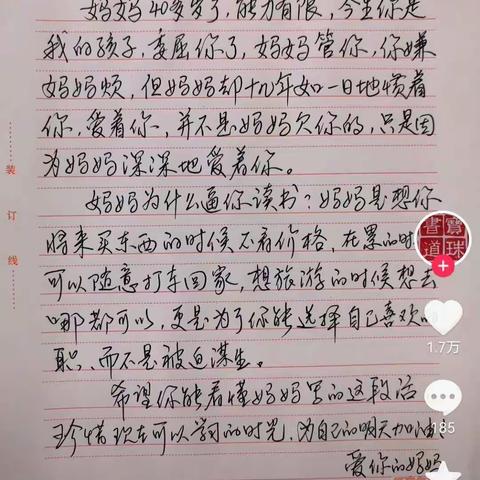 妈妈40多岁了,能力有限,今生你是
我的孩子,委屈你了,妈妈管你,你嫌
妈妈烦,但妈妈却十九年如一日地惯着
你,爱着你,并不是妈妈欠你的,只是因
为妈妈深深地爱着你。
妈妈为什么逼你读书?妈妈是想你
将来买东西的时候不看价格,在累的时
可以随意打车回家,想旅游的时候想去
哪都可以,更是为了你能选择自己喜欢的
职、而不是被迫谋生。
希望你能看懂妈妈写的这段话
珍惜现在可以学习的时光,为自己的明天加油
爱你的妈妈
装
订
线
寶珠
書道
1.7万
185